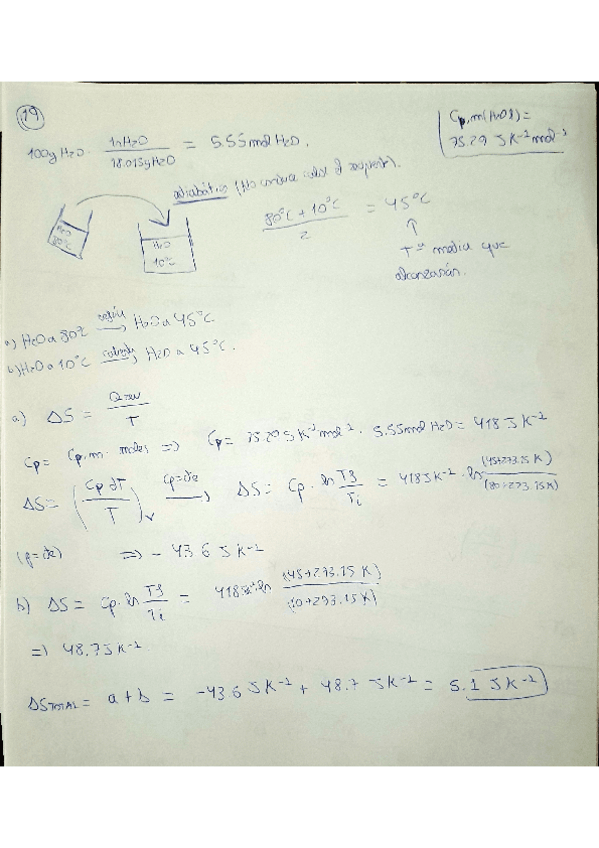 19
Cp,m(H2O l) =
75.29 J K-1 mol-1
100g H2O · 1n H2O / 18.015g H2O = 5.55 mol H2O.
adiabático (No calor al).
H2O 80ºC
H2O 10ºC
80ºC + 10ºC / 2 = 45ºC
↑
Tª media que
alcanzarán.
a) H2O a 80ºC → H2O a 45ºC
b) H2O a 10ºC → H2O a 45ºC.
a) ΔS = Qrev / T
Cp = Cp,m · moles => Cp = 75.29 J K-1 mol-1 · 5.55 mol H2O = 418 J K-1
ΔS = ∫ Cp dT / T Cp=cte → ΔS = Cp · ln Tf/Ti = 418 J K-1 · ln (45+273.15 K) / (80+273.15 K)
(p=cte) => - 43.6 J K-1
b) ΔS = Cp · ln Tf/Ti = 418 J K-1 ln (45+273.15 K) / (10+273.15 K)
=> 48.7 J K-1
ΔS TOTAL = a + b = -43.6 J K-1 + 48.7 J K-1 = 5.1 J K-1